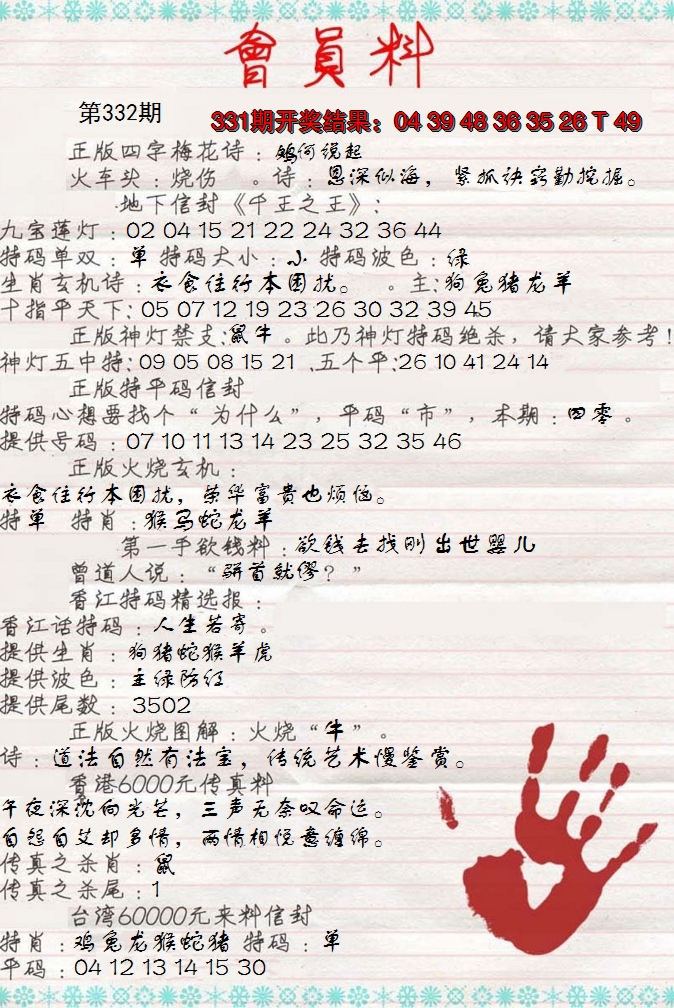 會員料
第332期
331期开奖结果：04 39 48 36 35 26 T 49
正版四字梅花诗：鸡何说起
火车头：烧伤 。诗：恩深似海，紧抓诀窍勤挖掘。
地下信封《千王之王》：
九宝莲灯：02 04 15 21 22 24 32 36 44
特码单双：单 特码大小：小 特码波色：绿
生肖玄机诗：衣食住行本困扰。 。主：狗兔猪龙羊
十指平天下：05 07 12 19 23 26 30 32 39 45
正版神灯禁支：鼠牛。此乃神灯特码绝杀，请大家参考！
神灯五中特：09 05 08 15 21 、五个平：26 10 41 24 14
正版特平码信封
特码心想要找个“为什么”，平码“市”，本期：四零。
提供号码：07 10 11 13 14 23 25 32 35 46
正版火烧玄机：
衣食住行本困扰，荣华富贵也烦恼。
特单 特肖：猴马蛇龙羊
第一手欲钱料：欲钱去找刚出世婴儿
曾道人说：“骈首就僇？”
香江特码精选报：
香江话特码：人生若寄。
提供生肖：狗猪蛇猴羊虎
提供波色：主绿防红
提供尾数：3502
正版火烧图解：火烧“牛”。
诗：道法自然有法宝，传统艺术慢鉴赏。
香港6000元传真料
午夜深沈向光芒，三声无奈叹命运。
自怨自艾却多情，两情相悦意缠绵。
传真之杀肖：鼠
传真之杀尾：1
台湾60000元来料信封
特肖：鸡兔龙猴蛇猪 特码：单
平码：04 12 13 14 15 30